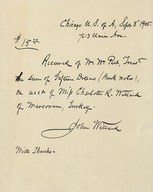 Chicago U.S. of A., Sep. 8, 1905.
7213 Union Ave.
$15.00
Received of Mr. W. Peet, Treas.
the sum of Fifteen Dollars (Bank notes),
on acct of Miss Charlotte R. Willard
of Marsovan, Turkey.
John Willard
With Thanks.